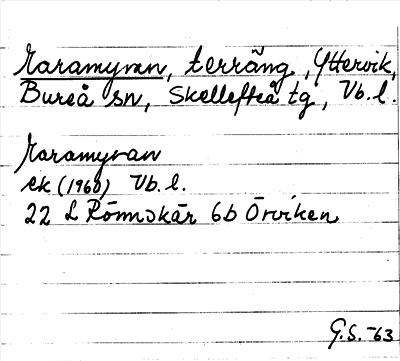 Raramyran, terräng, Yttervik,
Bureå sn, Skellefteå tg, Vb. l.
Raramyran
ek (1960) Vb. l.
22 L Rönnskär 6b Örviken
G.S. -63